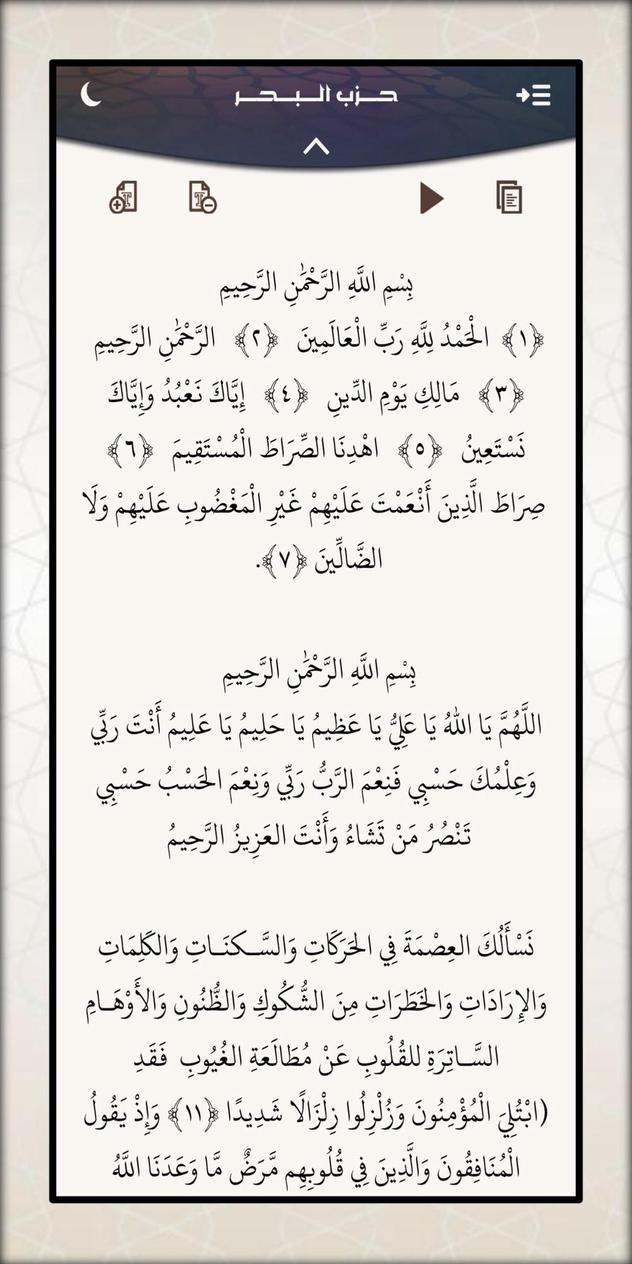 حزب البحر
بِسْمِ اللَّهِ الرَّحْمَٰنِ الرَّحِيمِ
﴿١﴾ الْحَمْدُ لِلَّهِ رَبِّ الْعَالَمِينَ ﴿٢﴾ الرَّحْمَٰنِ الرَّحِيمِ
﴿٣﴾ مَالِكِ يَوْمِ الدِّينِ ﴿٤﴾ إِيَّاكَ نَعْبُدُ وَإِيَّاكَ
نَسْتَعِينُ ﴿٥﴾ اهْدِنَا الصِّرَاطَ الْمُسْتَقِيمَ ﴿٦﴾
صِرَاطَ الَّذِينَ أَنْعَمْتَ عَلَيْهِمْ غَيْرِ الْمَغْضُوبِ عَلَيْهِمْ وَلَا
الضَّالِّينَ ﴿٧﴾.
بِسْمِ اللَّهِ الرَّحْمَٰنِ الرَّحِيمِ
اللَّهُمَّ يَا اللهُ يَا عَلِيُّ يَا عَظِيمُ يَا حَلِيمُ يَا عَلِيمُ أَنْتَ رَبِّي
وَعِلْمُكَ حَسْبِي فَنِعْمَ الرَّبُّ رَبِّي وَنِعْمَ الحَسْبُ حَسْبِي
تَنْصُرُ مَنْ تَشَاءُ وَأَنْتَ العَزِيزُ الرَّحِيمُ
نَسْأَلُكَ العِصْمَةَ فِي الحَرَكَاتِ وَالسَّكنَاتِ وَالكَلِمَاتِ
وَالإِرَادَاتِ وَالخَطَرَاتِ مِنَ الشُّكُوكِ وَالظُّنُونِ وَالأَوْهَامِ
السَّاتِرَةِ للقُلُوبِ عَنْ مُطَالَعَةِ الغُيُوبِ فَقَدِ
(ابْتُلِيَ الْمُؤْمِنُونَ وَزُلْزِلُوا زِلْزَالًا شَدِيدًا ﴿١١﴾ وَإِذْ يَقُولُ
الْمُنَافِقُونَ وَالَّذِينَ فِي قُلُوبِهِم مَّرَضٌ مَّا وَعَدَنَا اللَّهُ